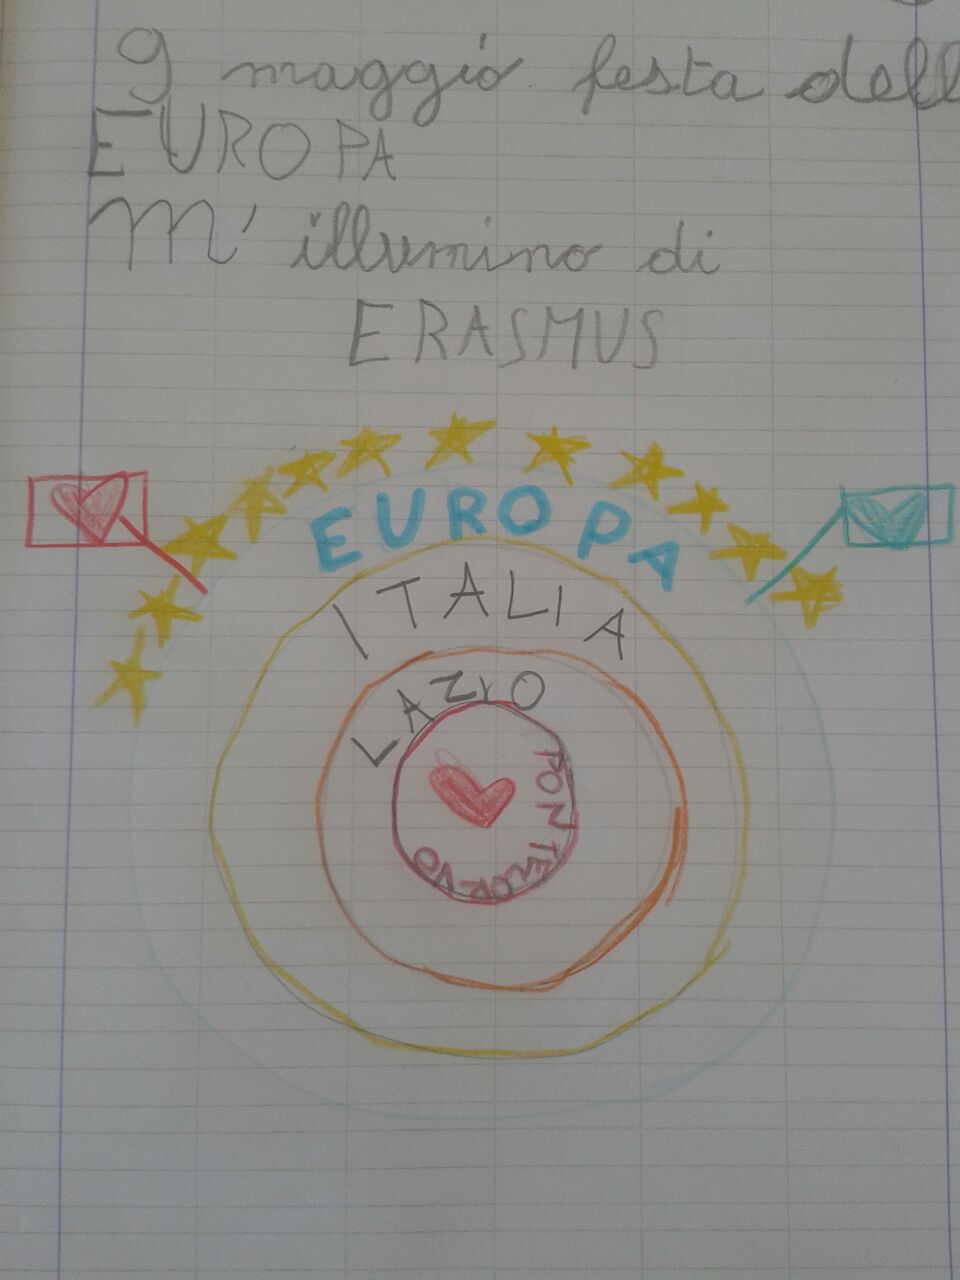 9 maggio festa dell
EUROPA
M'illumino di
ERASMUS
EUROPA
ITALIA
LAZIO
PONTECORVO